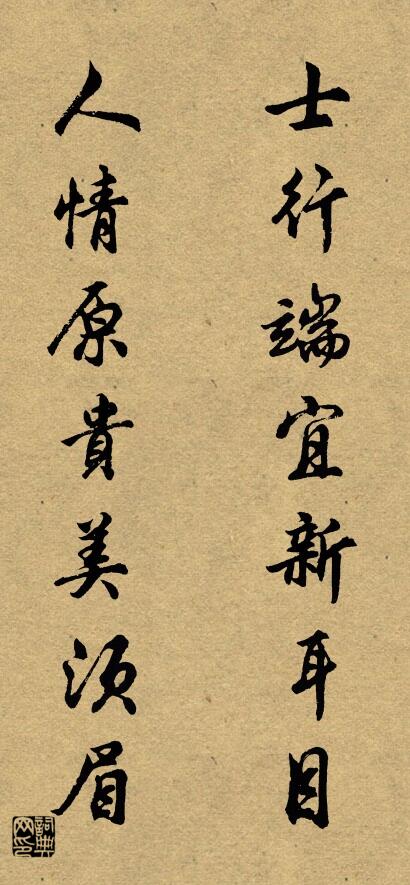 士行端宜新耳目
人情原貴美須眉
詞典网印